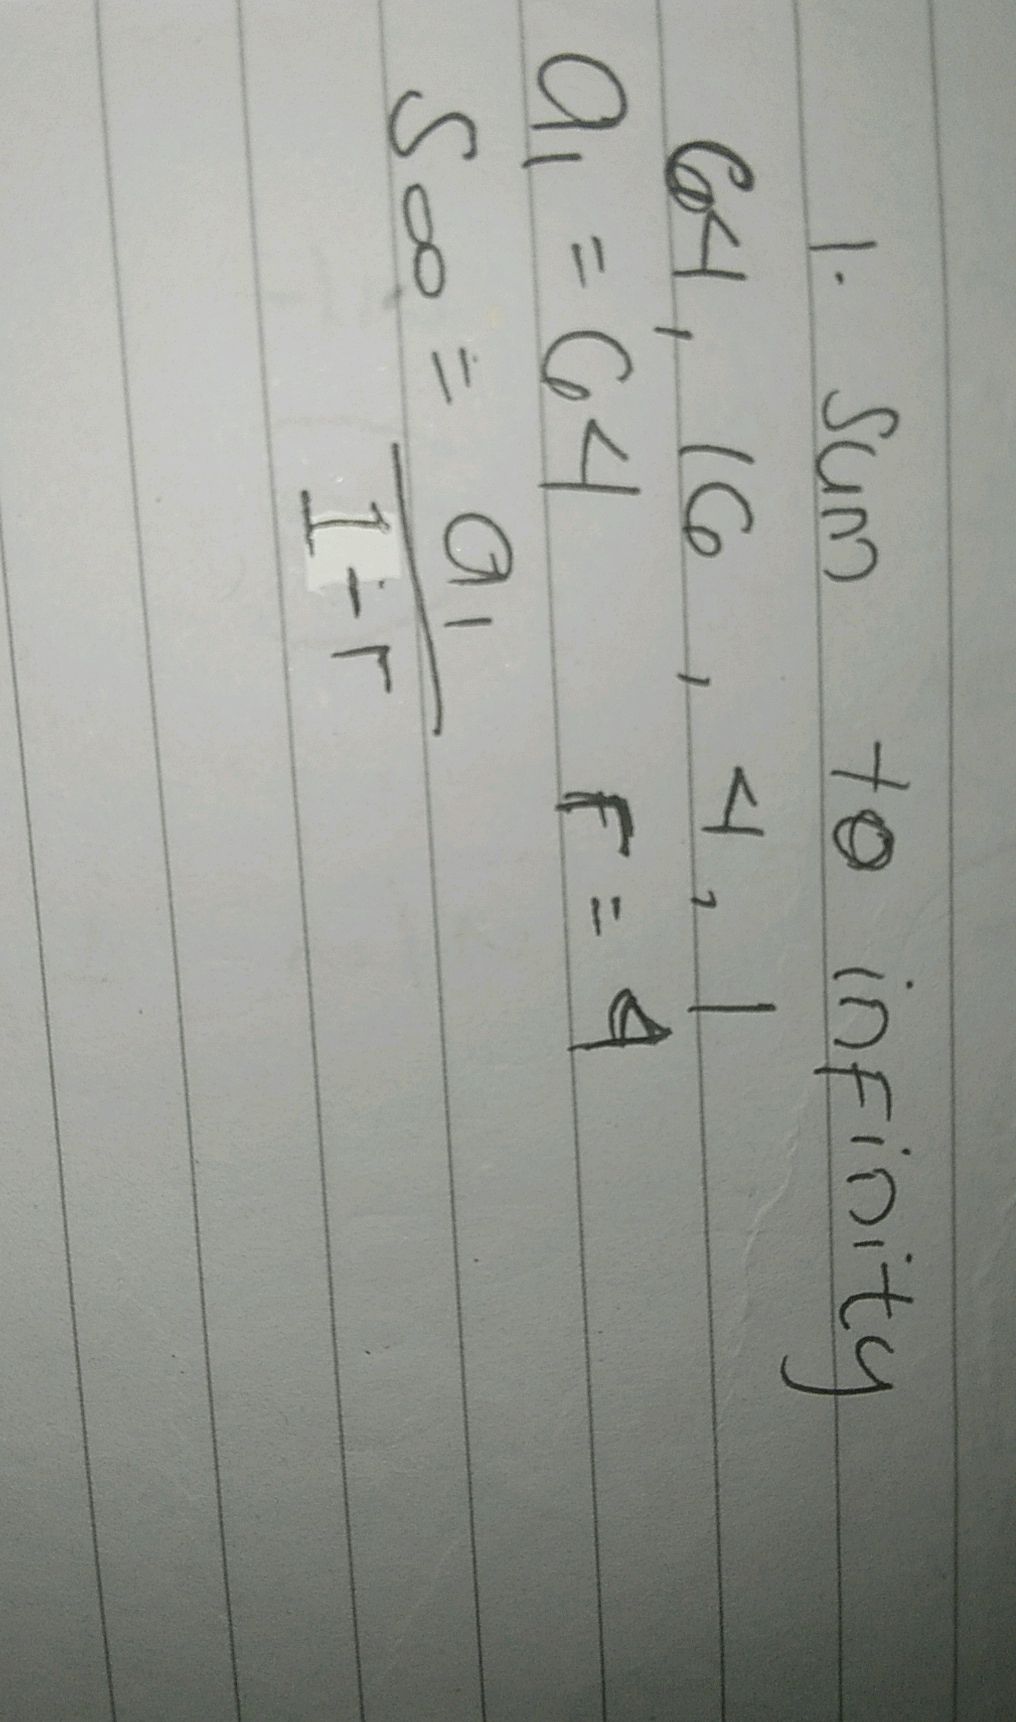 1. Sum to infinity
64, 16, 4, 1
a1 = 64 r = 4
S∞ = a1
1-r